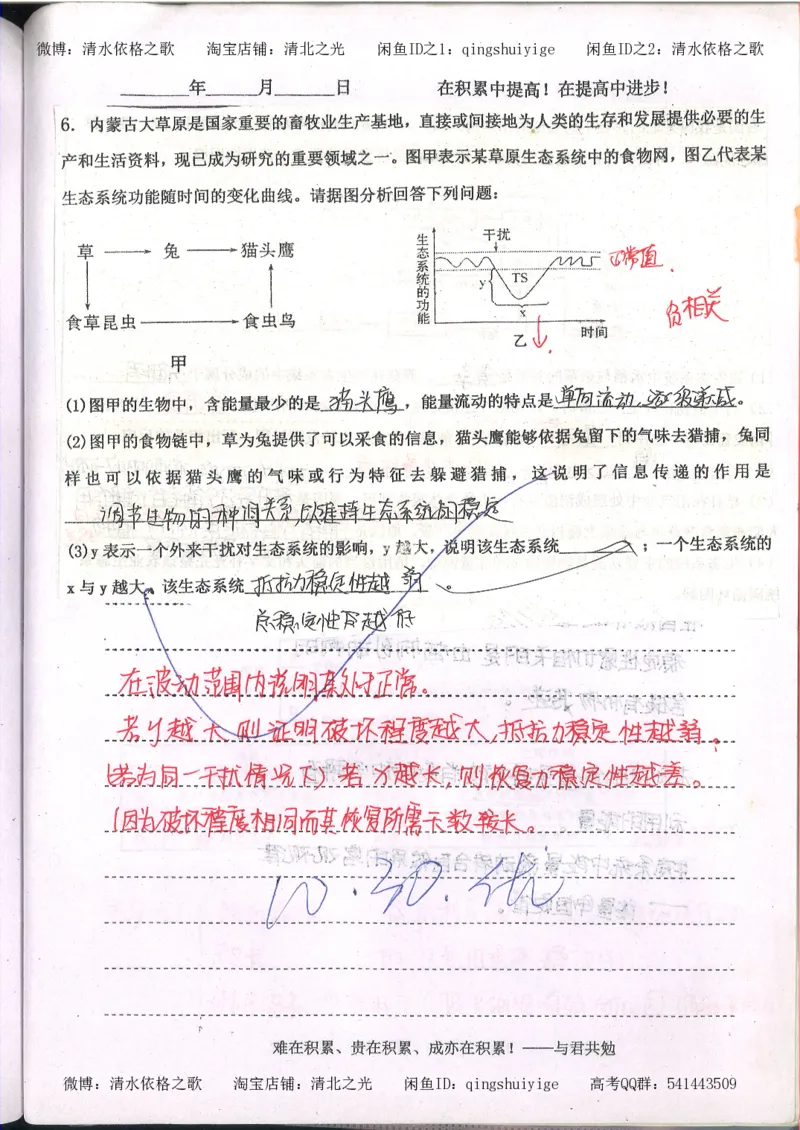 微博：清水依格之歌 淘宝店铺：清北之光 闲鱼ID之1：qingshuiyige 闲鱼ID之2：清水依格之歌
年 月 日 在积累中提高！在提高中进步！
6．内蒙古大草原是国家重要的畜牧业生产基地，直接或间接地为人类的生存和发展提供必要的生
产和生活资料，现已成为研究的重要领域之一。图甲表示某草原生态系统中的食物网，图乙代表某
生态系统功能随时间的变化曲线。请据图分析回答下列问题：
草 兔 猫头鹰
食草昆虫 食虫鸟
甲
生态系统的功能
干扰
y TS
x
时间
乙
正常值.
负相关
(1)图甲的生物中，含能量最少的是 猫头鹰 ，能量流动的特点是 单向流动，逐级递减 。
(2)图甲的食物链中，草为兔提供了可以采食的信息，猫头鹰能够依据兔留下的气味去猎捕，兔同
样也可以依据猫头鹰的气味或行为特征去躲避猎捕，这说明了信息传递的作用是
调节生物的种间关系，以维持生态系统的稳定
(3)y表示一个外来干扰对生态系统的影响，y越大，说明该生态系统 ；一个生态系统的
x与y越大，该生态系统 抵抗力稳定性越弱 。
总稳定性不越好
在波动范围内说明其处于正常。
若y越大则证明破坏程度越大，抵抗力稳定性越弱。
(若为同一干扰情况下)若x越长，则恢复力稳定性越差。
(因为破坏程度相同而其恢复所需天数较长。
10.30.
难在积累、贵在积累、成亦在积累！——与君共勉
微博：清水依格之歌 淘宝店铺：清北之光 闲鱼ID：qingshuiyige 高考QQ群：541443509